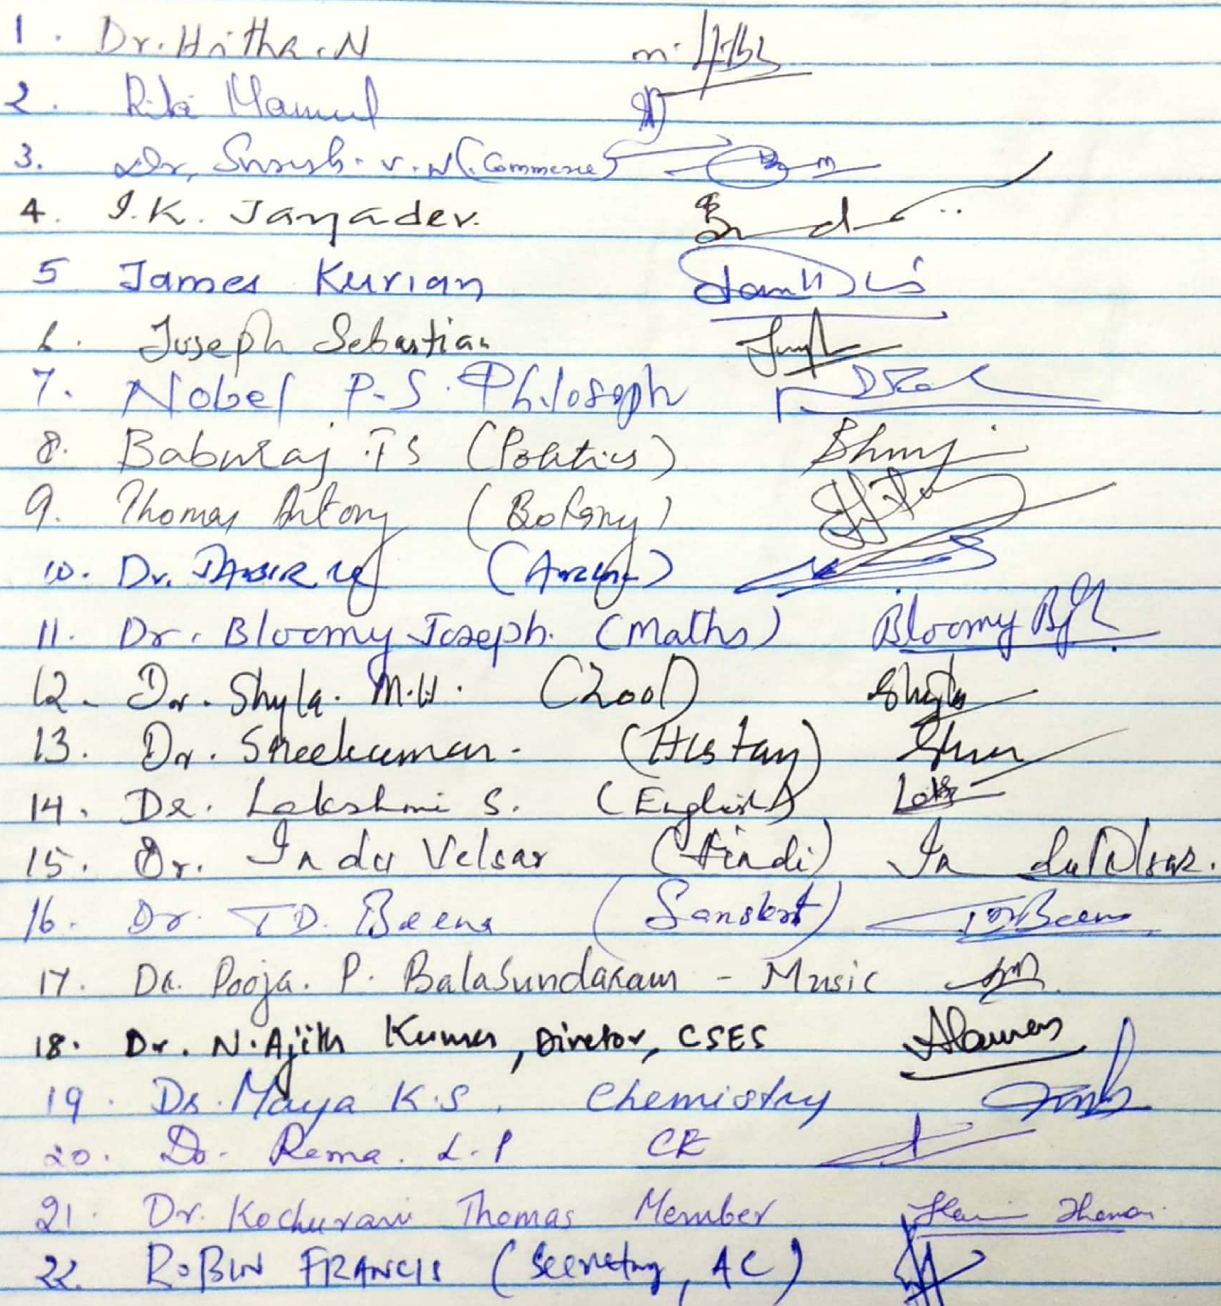 1. Dr. Hritha. N
2. Rita Manuel
3. Dr, Suresh. V. N (Commerce)
4. I.K. Jayadev.
5 James Kurian
6. Joseph Sebastian
7. Nobel P.S. Philosoph
8. Baburaj T S (Politics)
9. Thomas Antony (Botany)
10. Dr.
11. Dr. Bloomy Joseph. (Maths) Bloomy
12. Dr. Shyla. M.H. (Zool) Shyla
13. Dr. Sreekumar. (History)
14. Dr. Lakshmi S. (English)
15. Dr. Indu Velsar (Hindi) Indu
16. Dr. T D. Beena (Sanskrit) T D Beena
17. Dr. Pooja. P. Balasundaram - Music
18. Dr. N. Ajith Kumar, Director, CSES
19. Dr. Maya K.S. Chemistry
20. Dr. Rema. L.P CE
21. Dr. Kochurani Thomas Member
22. ROBIN FRANCIS (Secretary, AC)